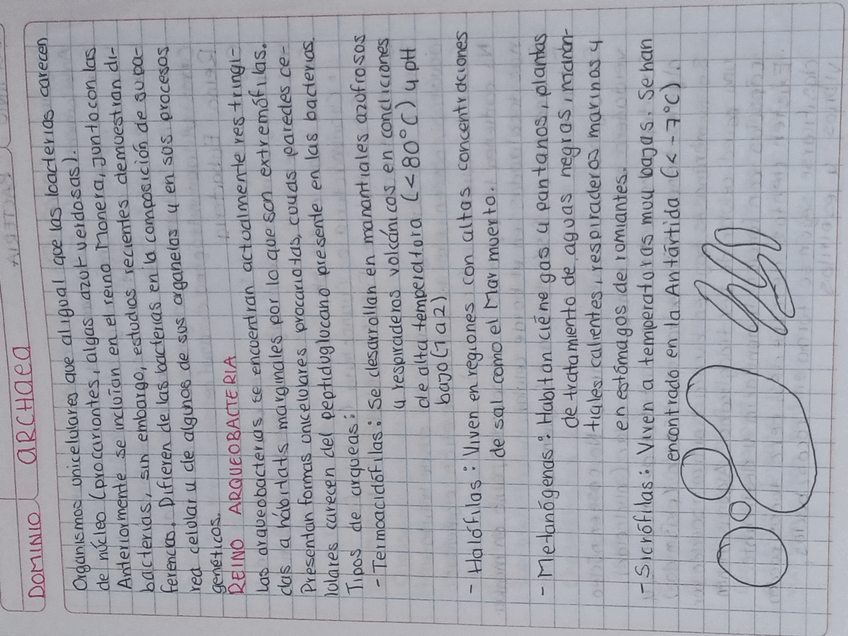 DOMINIO ARCHAEA
Organismos unicelulares que al igual que las bacterias carecen
de núcleo (procariontes, algas azul verdosas).
Anteriormente se incluían en el reino Monera, junto con las
bacterias, sin embargo, estudios recientes demuestran di-
ferencas. Difieren de las bacterias en la composición de su pa-
red celular y de algunos de sus organelas y en sus procesos
genéticos.
REINO ARQUEOBACTERIA
Las arqueobacterias se encuentran actualmente restringi-
das a hábitats marginales por lo que son extremófilas.
Presentan formas unicelulares procariotas, cuyas paredes ce-
lulares carecen del peptiduglucano presente en las bacterias.
Tipos de arqueas:
- Termoacidófilas: Se desarrollan en manantiales azufrosos
y respiraderos volcánicos en condiciones
de alta temperatura (<80°C) y pH
bajo (1 a 2)
- Halófilas: Viven en regiones con altas concentraciones
de sal como el Mar muerto.
- Metanógenas: Habitan ciénegas y pantanos, plantas
de tratamiento de aguas negras, manan-
tiales calientes, respiraderos marinos y
en estómagos de rumiantes.
- Sicrófilas: Viven a temperaturas muy bajas. Se han
encontrado en la Antártida (<-7°C).